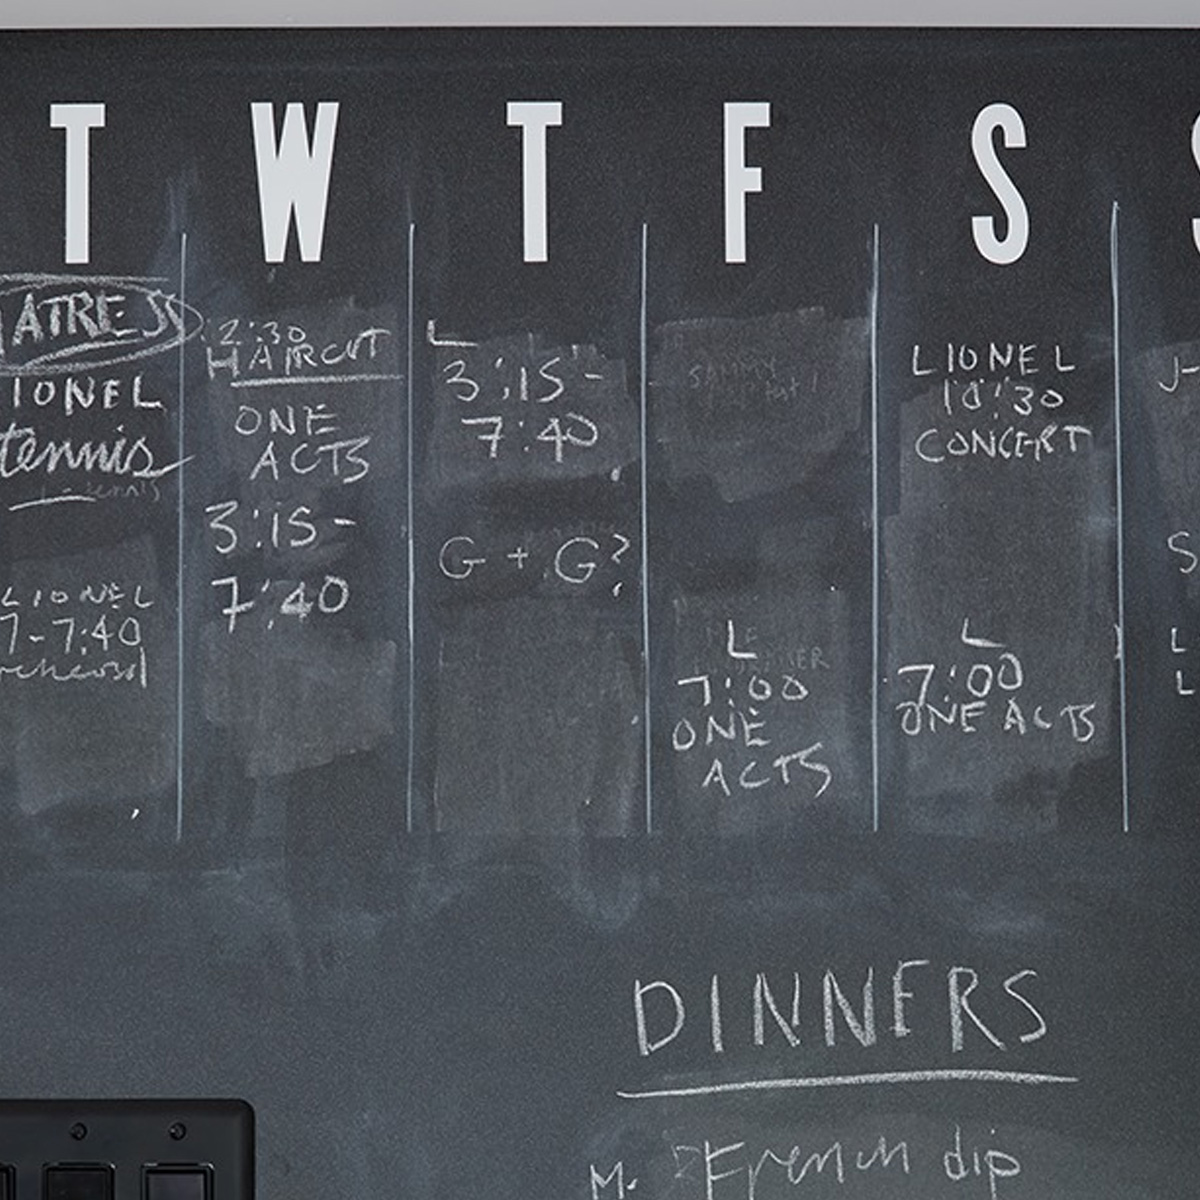 T W T F S S
ATRESS
IONEL
tennis
tennis
LIONEL
7-7:40
rehearsal
2:30
HAIRCUT
ONE
ACTS
3:15-
7:40
L
3:15-
7:40
G + G?
SAMMY
L
7:00
ONE
ACTS
LIONEL
10:30
CONCERT
L
7:00
ONE ACTS
J-
S
L
L
DINNERS
M. French dip